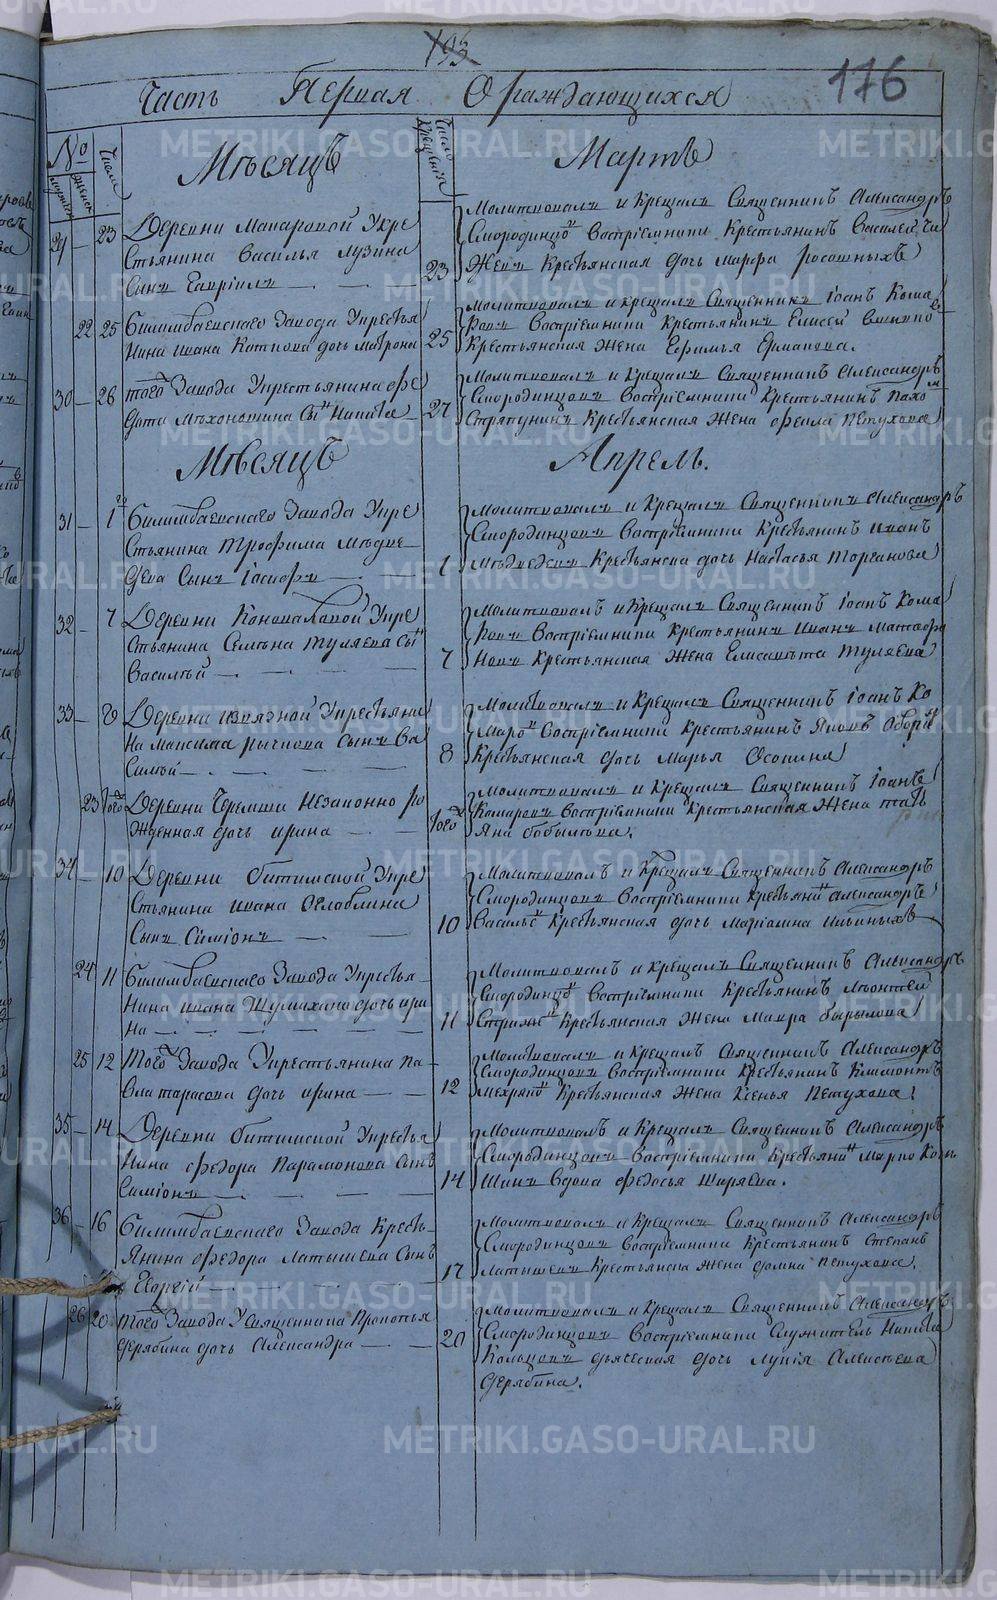 193
176
Часть Первая О раждающихся
№
мужеск женск
Числа
Месяцъ
Число крещенія
Мартъ
29 — 23 Деревни Макаровой Укре
стьянина Василья Лузина
Сынъ Гавріилъ
23
Молитвовалъ и Крещалъ Священникъ Александръ
Смородинцовъ Воспріемники Крестьянинъ Василей
Жена Крестьянская дочь Марфа
22 25 Билимбаевскаго Завода Укрестья
нина Ивана Коткова дочь Матрона
25
Молитвовалъ и крещалъ Священникъ Іоанъ Кома
ровъ Воспріемники Крестьянинъ Елисей
Крестьянская Жена Ефимья Ермакова.
30 — 26 того Завода Укрестьянина Фе
дота Мохоношина Сынъ Никита
27
Молитвовалъ и Крещалъ Священникъ Александръ
Смородинцовъ Воспріемники Крестьянинъ Пахо
Стряпунинъ Крестьянская Жена Фекла Петухова
Месяцъ Апрель.
31 — 1го Билимбаевскаго Завода Укре
стьянина Трофима Медве
дева Сынъ Іосифъ
1
Молитвовалъ и Крещалъ Священникъ Александръ
Смородинцовъ Воспріемники Крестьянинъ Иванъ
Медведевъ Крестьянска дочь Настасья Торганова
32 — 7 Деревни Коновaловой Укре
стьянина Семена Туляева Сынъ
Василей
7
Молитвовалъ и Крещалъ Священникъ Іоанъ Кома
ровъ Воспріемники Крестьянинъ Иванъ Матафо
новъ Крестьянская Жена Елисавета Туляева
33 — 8 Деревни Извязной Укрестьяни
на Максима Рычкова Сынъ Ва
силей
8
Молитвовалъ и Крещалъ Священникъ Іоанъ Ко
маровъ Воспріемники Крестьянинъ Яковъ
Крестьянская дочь Марья Осокина
23 того Деревни Черемши Незаконно ро
жденная дочь Ирина
того
Молитвовалъ и Крещалъ Священникъ Іоанъ
Комаровъ Воспріемники Крестьянская Жена Тать
яна Бобылева.
34 — 10 Деревни Битимской Укре
стьянина Ивана Оглоблина
Сынъ Симіонъ
10
Молитвовалъ и Крещалъ Священникъ Александръ
Смородинцовъ Воспріемники Крестьянинъ Александръ
Васильевъ Крестьянская дочь Маріамна Ильиныхъ
24 11 Билимбаевскаго Завода Укрестья
нина Ивана Шумихова дочь Ири
на
11
Молитвовалъ и Крещалъ Священникъ Александръ
Смородинцовъ Воспріемники Крестьянинъ Леонтей
Крестьянская Жена Мавра Бырылова
25 12 Того Завода Укрестьянина Па
вла Тарасова дочь Ирина
12
Молитвовалъ и Крещалъ Священникъ Александръ
Смородинцовъ Воспріемники Крестьянинъ Климонтъ
Крестьянская Жена Ксенья Петухова
35 — 14 Деревни Битимской Укрестья
нина Федора Парамонова Сынъ
Симіонъ
14
Молитвовалъ и Крещалъ Священникъ Александръ
Смородинцовъ Воспріемники Крестьянинъ Марко Кокъ
шинъ Вдова Федосья Ширяева.
36 — 16 Билимбаевскаго Завода Кресть
янина Федора Латышева Сынъ
Георгій
17
Молитвовалъ и Крещалъ Священникъ Александръ
Смородинцовъ Воспріемники Крестьянинъ Степанъ
Латышевъ Крестьянска Жена Домна Петухова.
26 20 того Завода У Священника Прокопья
Дерябина дочь Александра
20
Молитвовалъ и Крещалъ Священникъ Александръ
Смородинцовъ Воспріемники Служитель Никита
Кольцовъ дьяческая дочь Лукія Алексеева
Дерябина.
METRIKI.GASO-URAL.RU